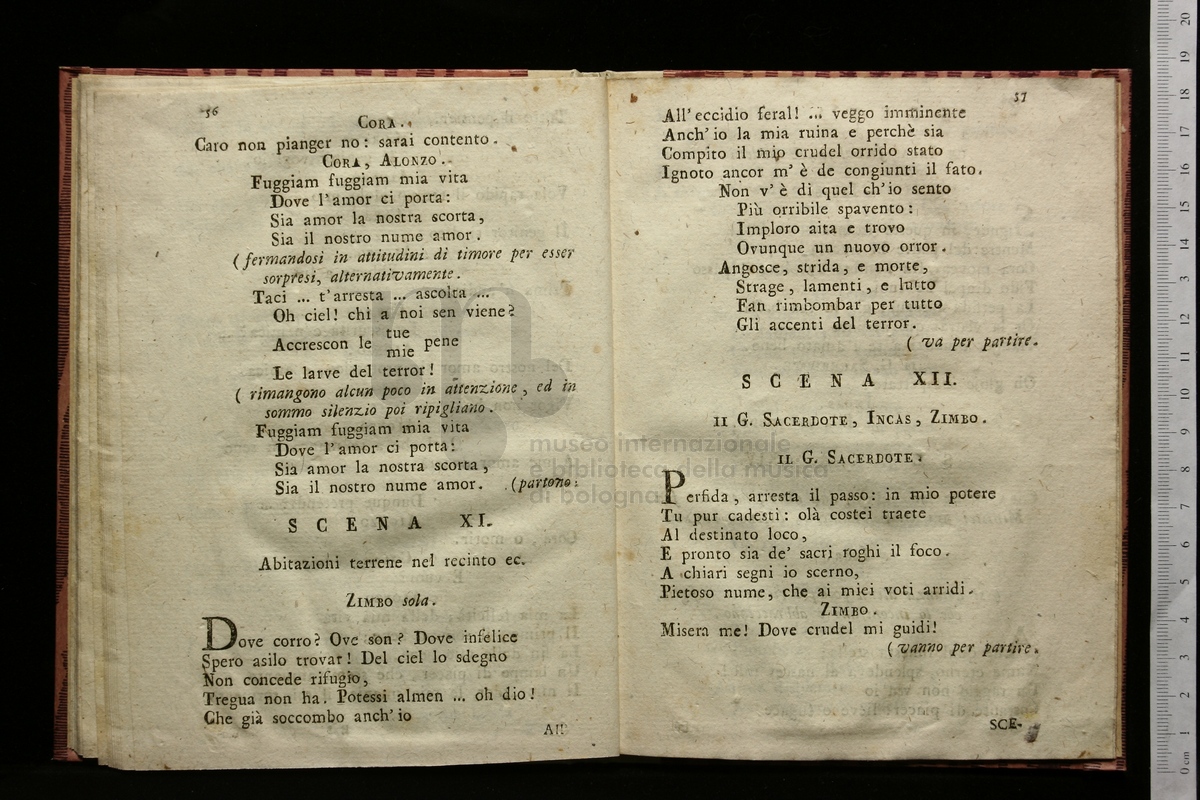 56
CORA..
Caro non pianger no: sarai contento.
CORA, ALONZO.
Fuggiam fuggiam mia vita
Dove l'amor ci porta:
Sia amor la nostra scorta,
Sia il nostro nume amor.
(fermandosi in attitudini di timore per esser
sorpresi, alternativamente.
Taci ... t'arresta ... ascolta ...
Oh ciel! chi a noi sen viene?
tue
Accrescon le pene
mie
Le larve del terror!
( rimangono alcun poco in attenzione, ed in
sommo silenzio poi ripigliano.
Fuggiam fuggiam mia vita
Dove l'amor ci porta:
Sia amor la nostra scorta,
Sia il nostro nume amor. (partono.
SCENA XI.
Abitazioni terrene nel recinto ec.
ZIMBO sola.
Dove corro? Ove son? Dove infelice
Spero asilo trovar! Del ciel lo sdegno
Non concede rifugio,
Tregua non ha. Potessi almen ... oh dio!
Che già soccombo anch'io
All'
57
All'eccidio feral! ... veggo imminente
Anch'io la mia ruina e perchè sia
Compito il mio crudel orrido stato
Ignoto ancor m'è de congiunti il fato.
Non v'è di quel ch'io sento
Più orribile spavento:
Imploro aita e trovo
Ovunque un nuovo orror.
Angosce, strida, e morte,
Strage, lamenti, e lutto
Fan rimbombar per tutto
Gli accenti del terror.
( va per partire.
SCENA XII.
II G. SACERDOTE, INCAS, ZIMBO.
IL G. SACERDOTE.
Perfida, arresta il passo: in mio potere
Tu pur cadesti: olà costei traete
Al destinato loco,
E pronto sia de' sacri roghi il foco.
A chiari segni io scerno,
Pietoso nume, che ai miei voti arridi.
ZIMBO.
Misera me! Dove crudel mi guidi!
(vanno per partire.
SCE-
museo internazionale
e biblioteca della musica
di bologna
0 cm 1 2 3 4 5 6 7 8 9 10 11 12 13 14 15 16 17 18 19 20